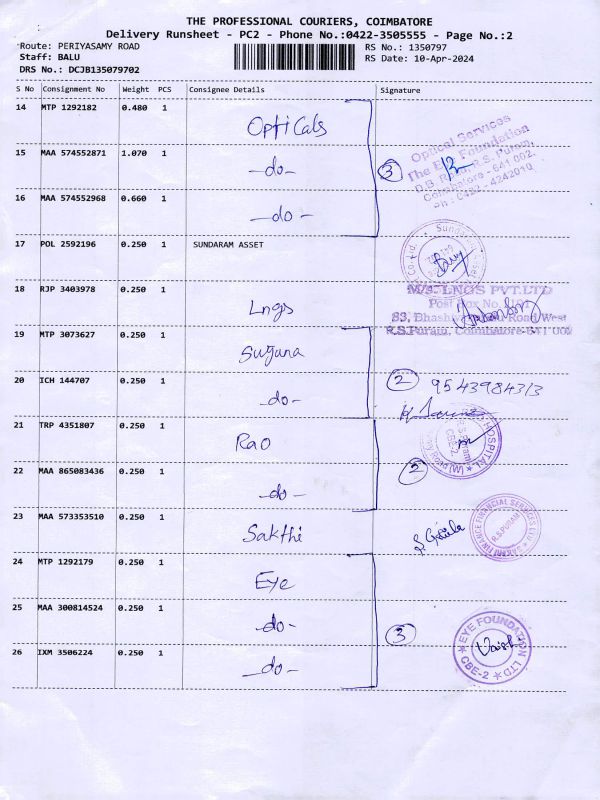 THE PROFESSIONAL COURIERS, COIMBATORE
Delivery Runsheet - PC2 - Phone No.:0422-3505555 - Page No.:2
Route: PERIYASAMY ROAD
RS No.: 1350797
Staff: BALU
RS Date: 10-Apr-2024
DRS No.: DCJB135079702
S No Consignment No Weight PCS Consignee Details Signature
14 MTP 1292182 0.480 1 Opticals
15 MAA 574552871 1.070 1 -do-
16 MAA 574552968 0.660 1 -do-
3
Optical Services
The Eye Foundation
D.B. Road, R.S. Puram,
Coimbatore - 641 002.
Ph : 0422 - 4242010
17 POL 2592196 0.250 1 SUNDARAM ASSET
18 RJP 3403978 0.250 1 Lngs
M/s. LNGS PVT.LTD
Post Box No.
R.S.Puram, Coimbatore-641 002
19 MTP 3073627 0.250 1 Suguna
20 ICH 144707 0.250 1 -do-
2 9543984313
21 TRP 4351807 0.250 1 Rao
22 MAA 865083436 0.250 1 -do-
2
HOSPITAL
CBE-2
23 MAA 573353510 0.250 1 Sakthi
SAKTHI FINANCE FINANCIAL SERVICES LTD
R.S.PURAM
24 MTP 1292179 0.250 1 Eye
25 MAA 300814524 0.250 1 -do-
26 IXM 3506224 0.250 1 -do-
3
EYE FOUNDATION LTD
CBE-2